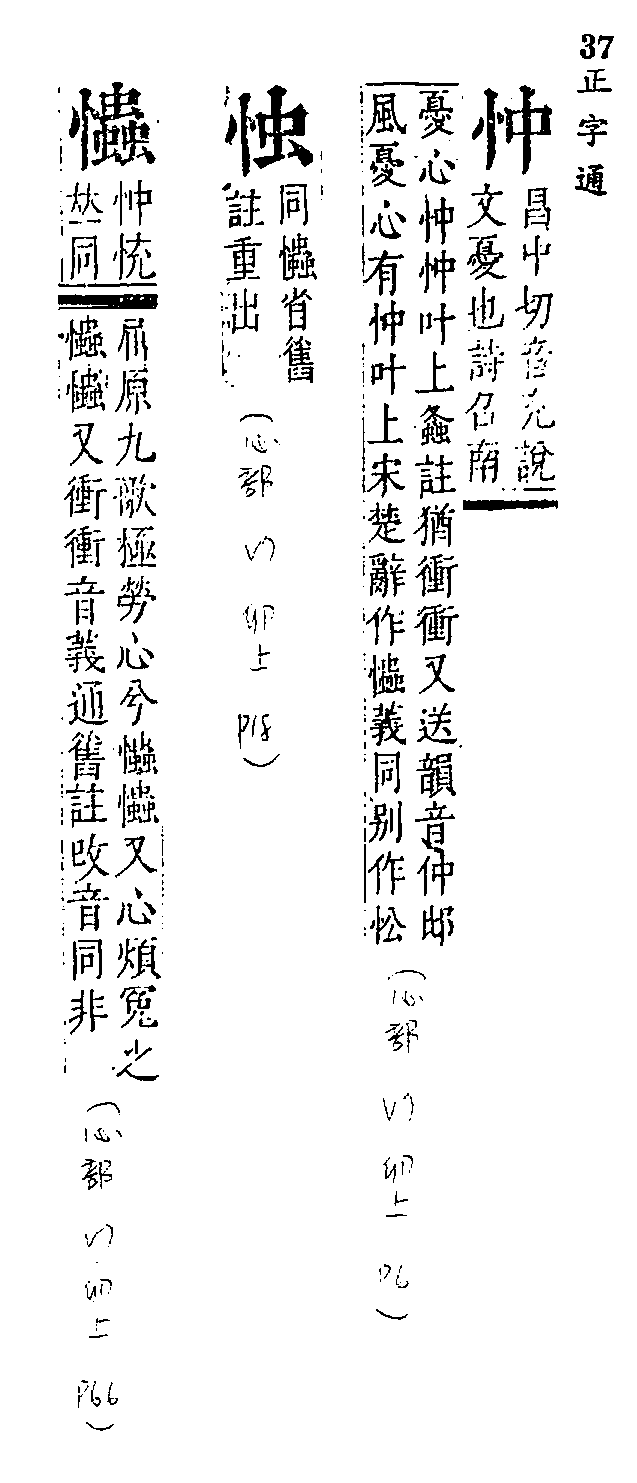 37
正字通
忡
昌中切音充說
文憂也詩召南
憂心忡忡叶上螽註猶衝衝又送韻音仲邶
風憂心有忡叶上宋楚辭作𢥞義同别作忪
(心部 卯上 P6)
同𢥞省舊
註重出
(心部 卯上 P18)
𢥞
忡㤝
𠀤同
屈原九歌極勞心兮𢥞𢥞又心煩冤之
𢥞𢥞又衝衝音義通舊註改音同非
(心部 卯上 P66)